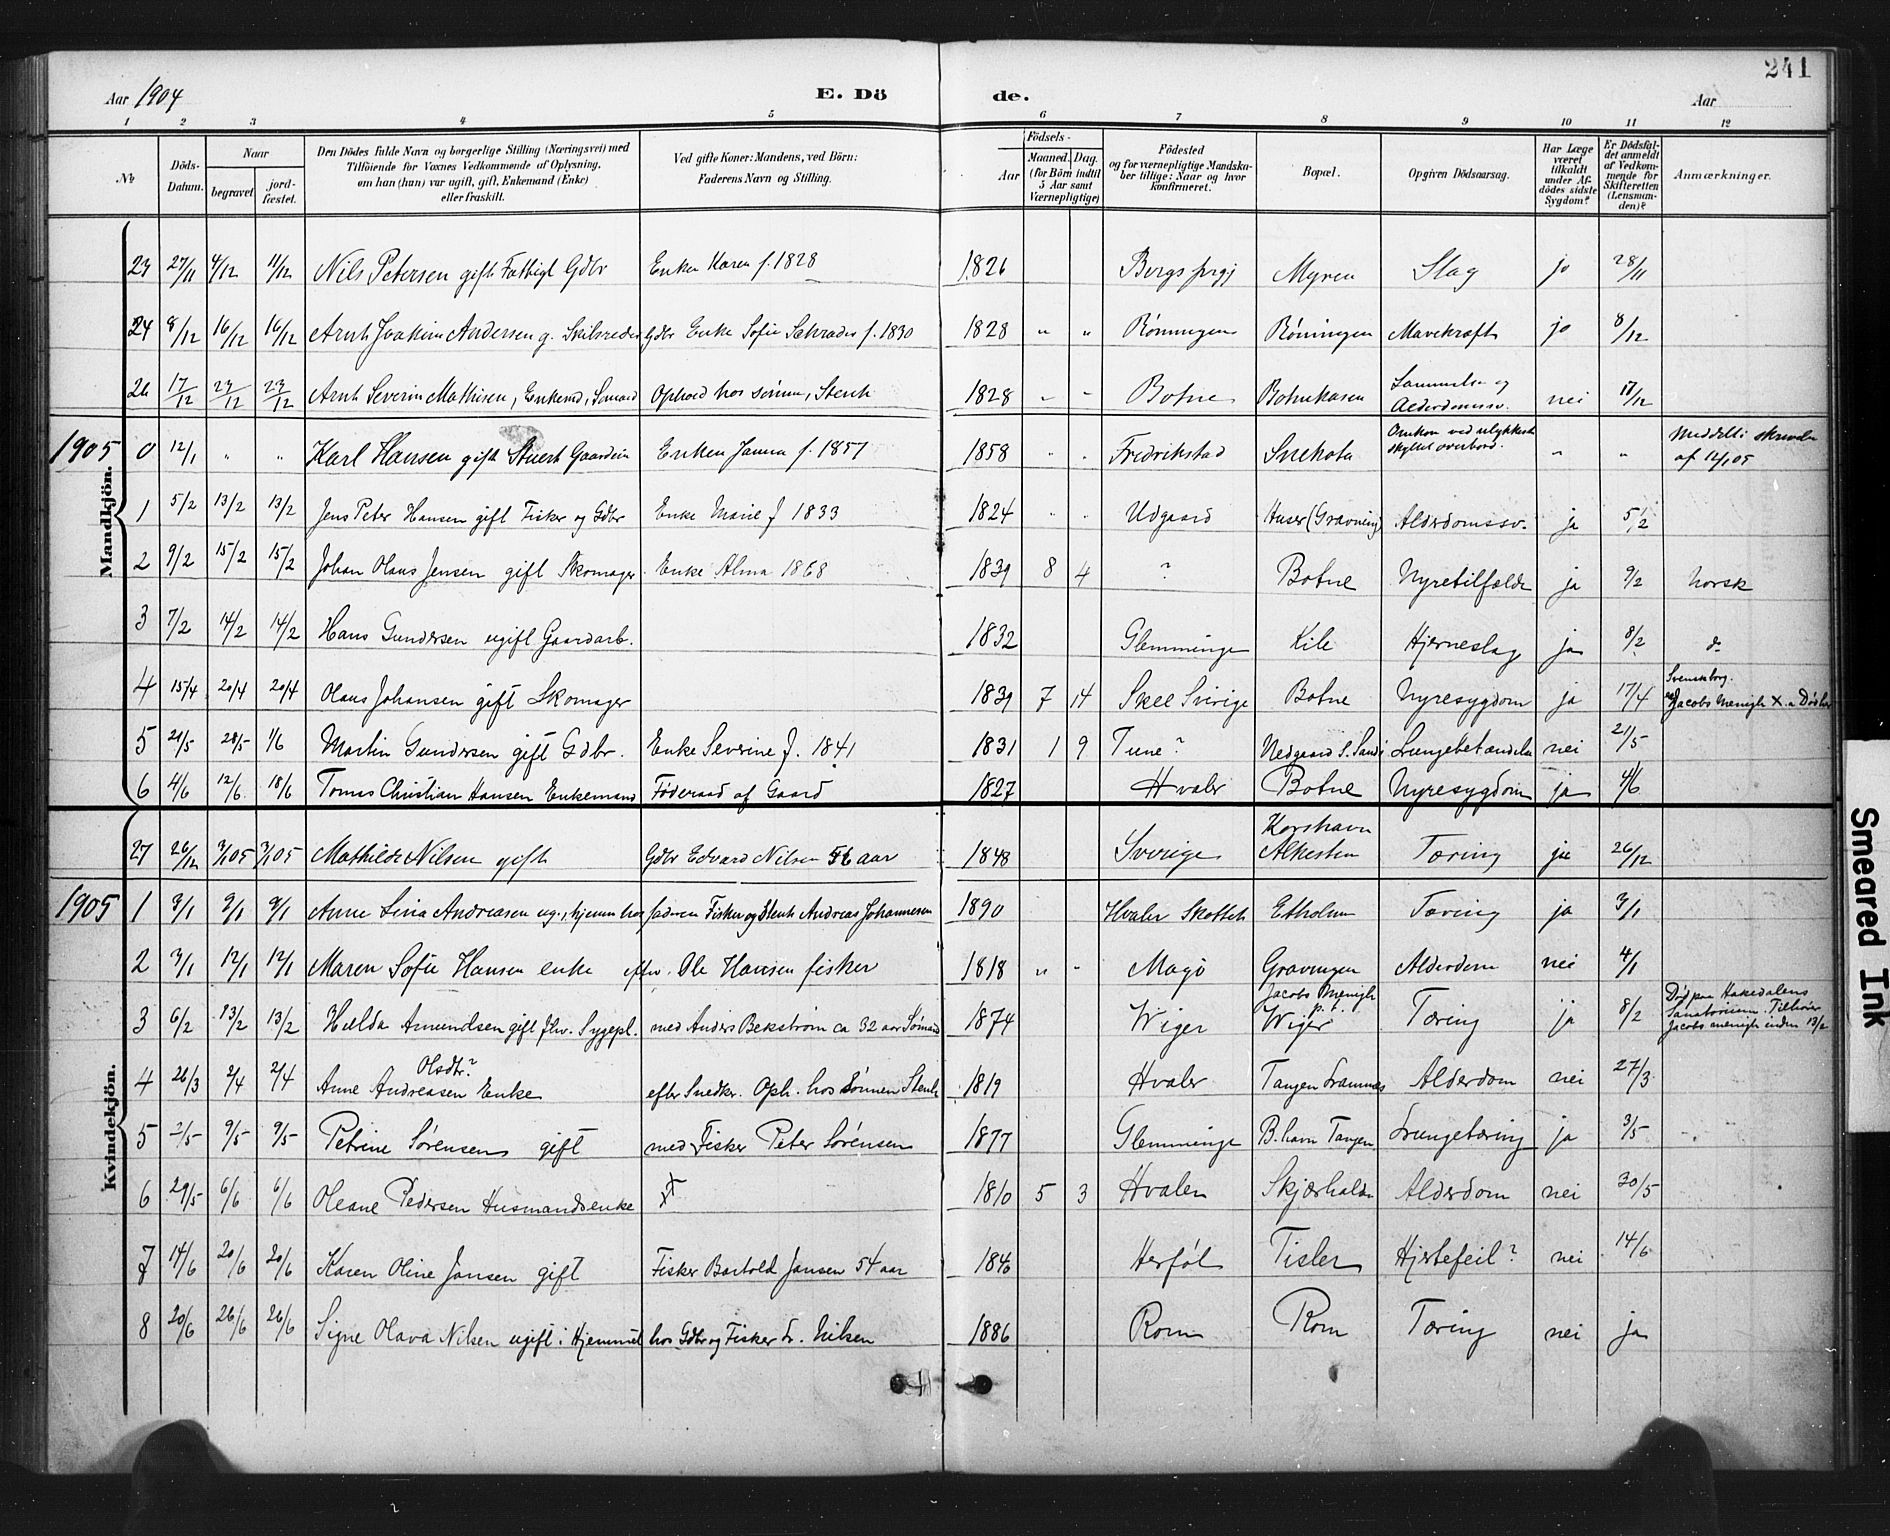 241
Aar 1904 E. Dö de. Aar
1 2 3 4 5 6 7 8 9 10 11 12
No
Döds-Datum.
Naar begravet jordfæstet.
Den Dödes fulde Navn og borgerlige Stilling (Næringsvei) med Tilföiende for Voxnes Vedkommende af Oplysning, om han (hun) var ugift, gift, Enkemand (Enke) eller fraskilt.
Ved gifte Koner: Mandens, ved Börn: Faderens Navn og Stilling.
Födsels-
Aar
Maaned. Dag. (for Börn indtil 5 Aar samt Værnepligtige)
Födested og for værnepligtige Mandskaber tillige: Naar og hvor konfirmeret.
Bopæl.
Opgiven Dödsaarsag.
Har Læge været tilkaldt under Afdödes sidste Sygdom?
Er Dödsfaldet anmeldt af Vedkommende for Skifteretten (Lensmanden)?
Anmærkninger.
23 27/11 4/12 11/12 Nils Petersen gift Fattigl Gdbr Enken Karen f. 1828 1826 Borgs prgj Myren Slag jo 28/11
24 8/12 16/12 16/12 Arnt Joakim Andersen g. Skibsreder Gdbr Enke Sofie f. 1830 1828 " " Röningen Röningen Mavekræft jo 8/12
26 17/12 23/12 23/12 Arnt Severin Mathisen, Enkemd, Ophold hos sønnen, Stenh 1828 " " Botne Botnekasen og Alderdomssv. nei 17/12
1905 Mandkjön.
0 12/1 " " Karl Hansen gift Gaardein Enken Janna f. 1857 1858 " . Fredrikstad Snekota Omkom ved ulykkest skyllet overbord. " " Meddelt i skrivelse af 12/1 05
1 5/2 13/2 13/2 Jens Peter Hansen gift Fisker og Gdbr Enke Marie f 1833 1824 . . Udgaard Huser (Gravning) Alderdomssv. ja 5/2
2 9/2 15/2 15/2 Johan Olaus Jensen gift Skomager Enke Alma 1868 1839 8 4 ? Botne Nyretilfælde ja 9/2 norsk
3 7/2 14/2 14/2 Hans Gundersen ugift Gaardarb. 1832 Glemminge Kile Hjerneslag ja 8/2 do
4 15/4 20/4 20/4 Olaus Johansen gift Skomager 1839 7 14 Skee Sverige Botne Nyresygdom ja 17/4 Svenskborg. Jacobs Menigh
5 21/5 28/5 1/6 Martin Gundersen gift Gdbr. Enke Severine f. 1841 1831 1 9 Tune? Nedgaard S. Sandö Lungebetændelse nei 21/5
6 4/6 12/6 18/6 Tomas Christian Hansen Enkemand Föderaad af Gaard 1827 Hvaler Botne Nyresygdom ja 4/6
Kvindekjön.
27 26/12 3/1 05 3/1 05 Mathilde Nilsen gift Gdbr Edvard Nilsen 56 aar 1848 Sverige Korshavn Alkesten Tæring ja 26/12
1905 1 3/1 9/1 9/1 Anne Lina Andreasen ug., hjemme hos faderen Fisker og Stenh Andreas Johannesen 1890 Hvaler Etholmen Tæring ja 3/1
2 3/1 12/1 12/1 Maren Sofie Hansen enke efter Ole Hansen fisker 1818 " " Magö Gravningen Alderdom nei 4/1
3 6/2 13/2 13/2 Hulda Amundsen gift fhv. Sygepl. med Anders Bekström ca 32 aar Sömand 1874 Wiger Jacobs Menigh p.t. Wiger Tæring ja 8/2 Död paa Hakedalens Sanatorium. Tilhörer Jacobs menigh inden 13/2
4 26/3 2/4 2/4 Anne Andreasen Olsdtr? Enke efter Snedker. Oph. hos Sönnen Stenh 1819 Hvaler Tangen Alderdom nei 27/3
5 2/5 9/5 9/5 Petrine Sørensen gift med Fisker Peter Sørensen 1877 Glemminge B.havn Tangen Lungetæring ja 3/5
6 29/5 6/6 6/6 Oleane Pedersen Husmandsenke 1810 5 3 Hvaler Skjærhalden Alderdom nei 30/5
7 14/6 20/6 20/6 Karen Oline Jansen gift Fisker Bartold Jansen 54 aar 1846 Herföl Tisler Hjertefeil? nei 14/6
8 20/6 26/6 26/6 Signe Olava Nilsen ugift i Hjemmet hos Gdbr og Fisker Nilsen 1886 Rom Rom Tæring nei ja
Smeared Ink